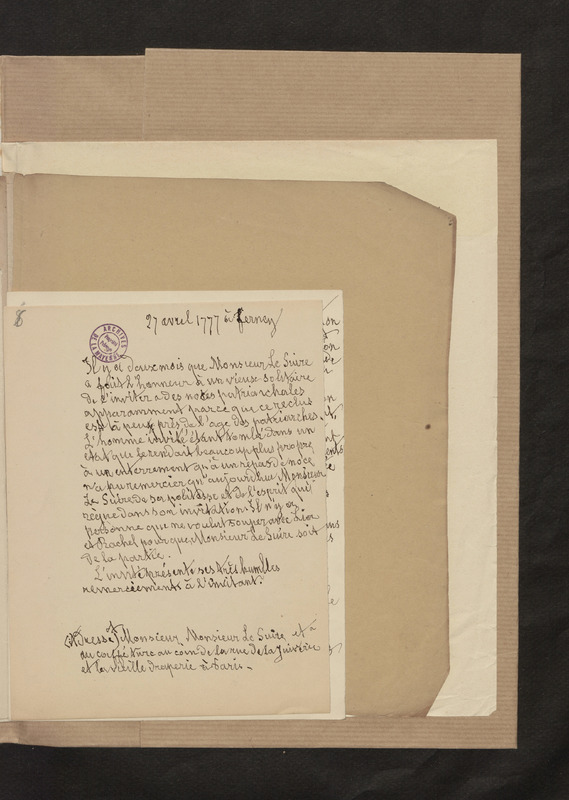 27 avril 1777 à ferney
ARCHIVES
Il y a deux mois que Monsieur Le Suire
a fait l'honneur à un vieux solitaire
de l'inviter a des noces patriarchales
apparamment parce que ce reclus
est à peu près de l'age des patriarches
L'homme invité étant tombé dans un
état qui le rendait beaucoup plus propre
à un enterrement qu'à un repas de noce
n'a pu remercier qu'aujourdhui Monsieur
Le Suire de sa politesse et de l'esprit qui
règne dans son invitation. Il n'y a
personne que ne voulut souper avec Lia
et Rachel pourque Monsieur Le Suire soit
de la partie.
L'invité présente ses très humbles
remerciements à l'invitant.
Monsieur, Monsieur Le Suire
au caffé turc au coin de la rue de la Juiverie
et la vieille draperie à Paris